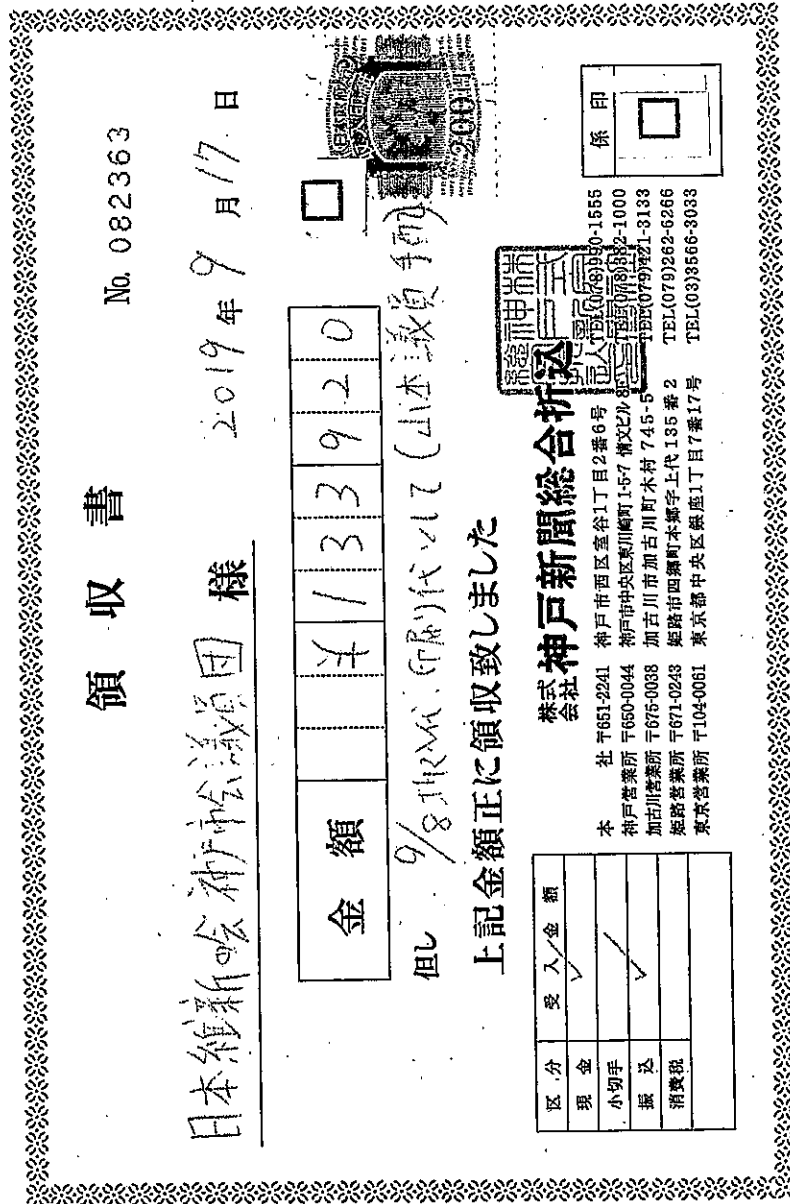 領収書
No. 082363
日本維新の会神戸市会議員団 様
2019年 9月 17日
金額 ¥133920
但し 9/8折込代、印刷代として(山本議員手配)
上記金額正に領収致しました
200円
株式会社 神戸新聞総合折込
本社 〒651-2241 神戸市西区室谷1丁目2番6号 TEL(078)990-1555
神戸営業所 〒650-0044 神戸市中央区東川崎町1-5-7 情文ビル8F TEL(078)382-1000
加古川営業所 〒675-0038 加古川市加古川町木村745-5 TEL(079)421-3133
姫路営業所 〒671-0243 姫路市四郷町本郷字上代135番2 TEL(079)262-6266
東京営業所 〒104-0061 東京都中央区銀座1丁目7番17号 TEL(03)3566-3033
係印
区分 受入金額
現金
小切手
振込
消費税